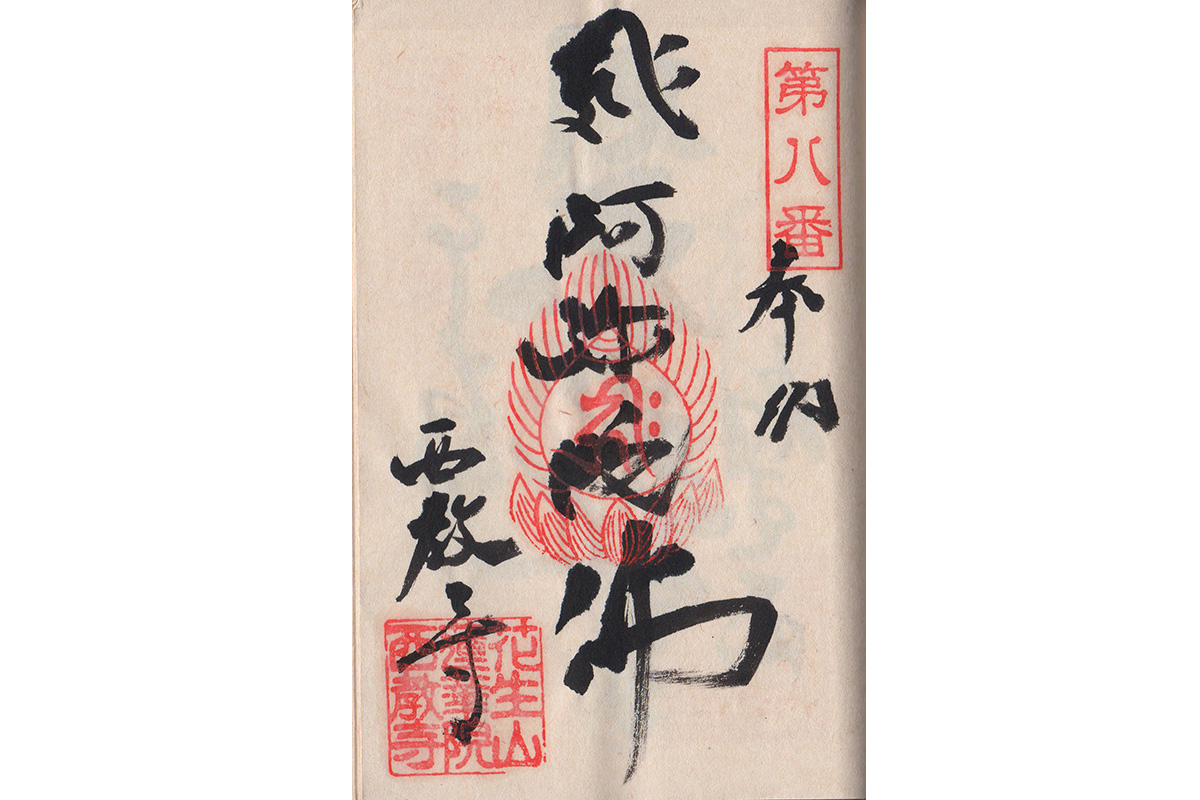 第八番
奉納
阿弥陀佛
西教寺
花生山
蓮華院
西教寺